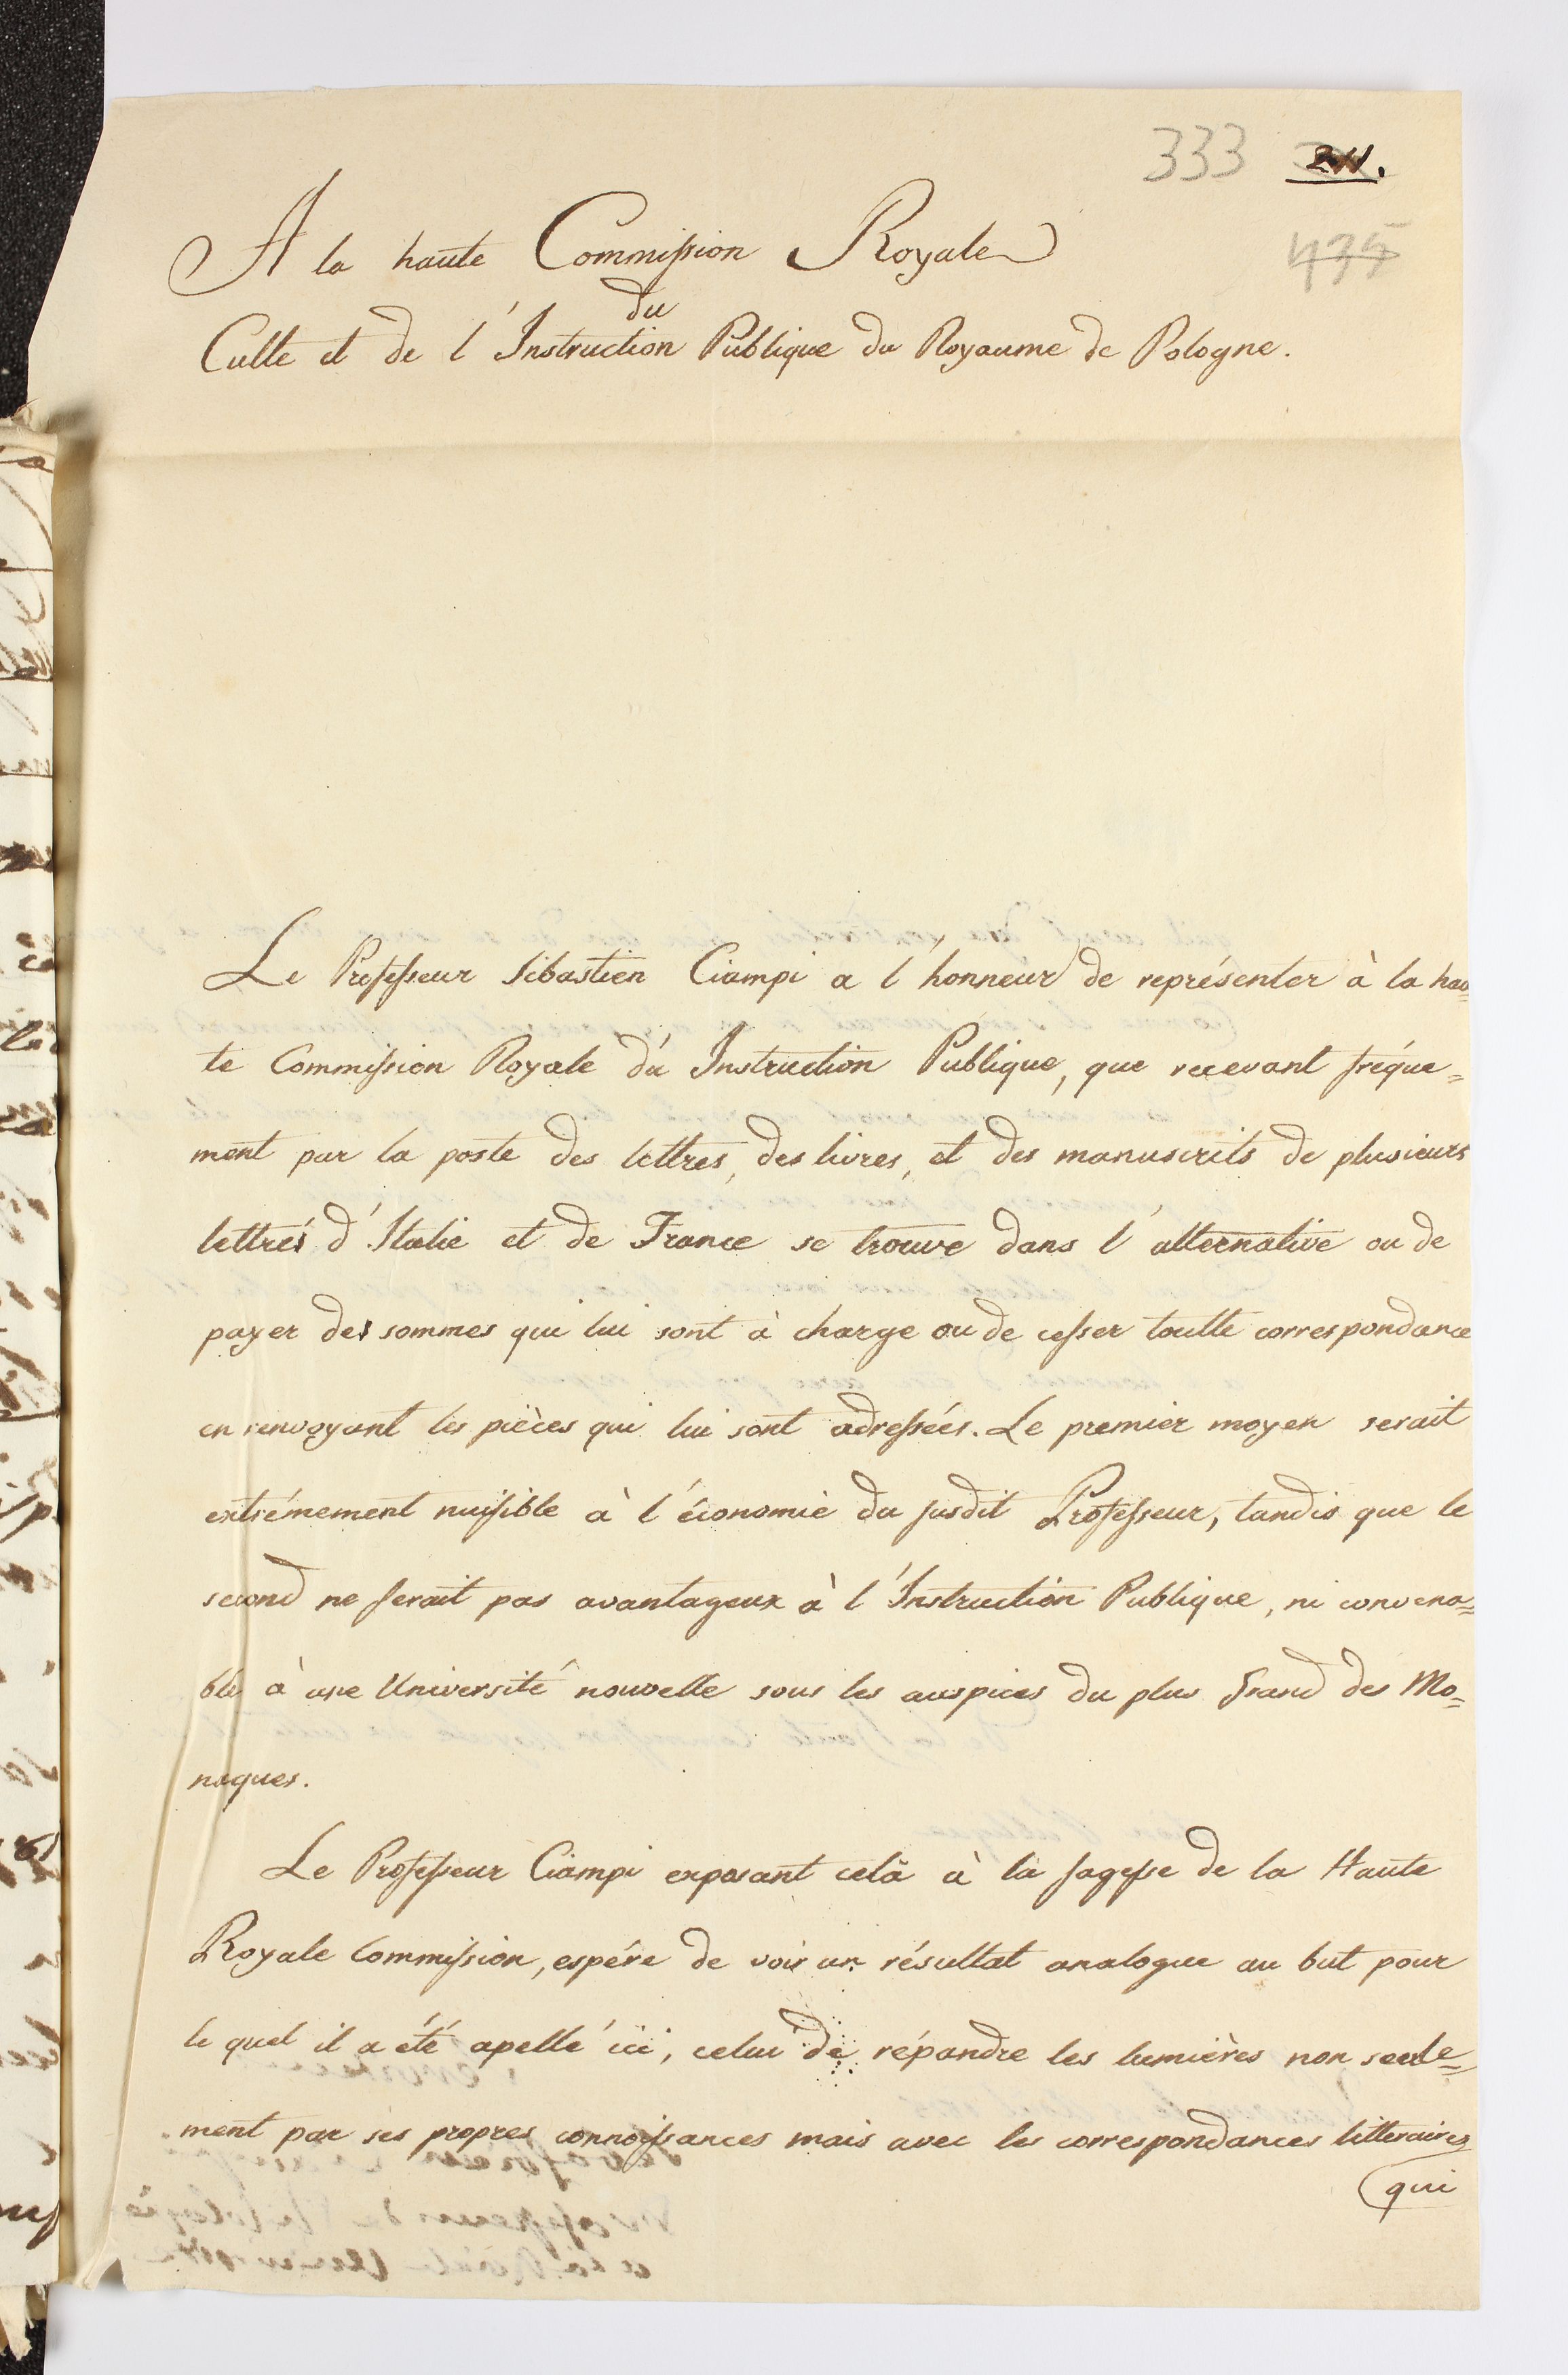 333
A la haute Commission Royale
du
Culte et de l'Instruction Publique du Royaume de Pologne.
Le Professeur Sébastien Ciampi a l'honneur de représenter à la hau=
te Commission Royale d'u Instruction Publique, que recevant fréque=
ment par la poste des lettres, des livres, et des manuscrits de plusieurs
lettrés d'Italie et de France se trouve dans l'alternative ou de
payer des sommes qui lui sont à charge ou de cesser toutte correspondance
en renvoyant les pièces qui lui sont adressées. Le premier moyen serait
extrémement nuisible à l'économie du susdit Professeur, tandis que le
second ne serait pas avantageux à l'Instruction Publique, ni convena=
ble à une Université nouvelle sous les auspices du plus Grand des Mo=
naques.
Le Professeur Ciampi exposant celà à la sagesse de la Haute
Royale Commission, espére de voir un résultat analogue au but pour
le quel il a été apellé ici, celui de répandre les lumières non seule=
ment par ses propres connoissances mais avec les correspondances litteraires
qui